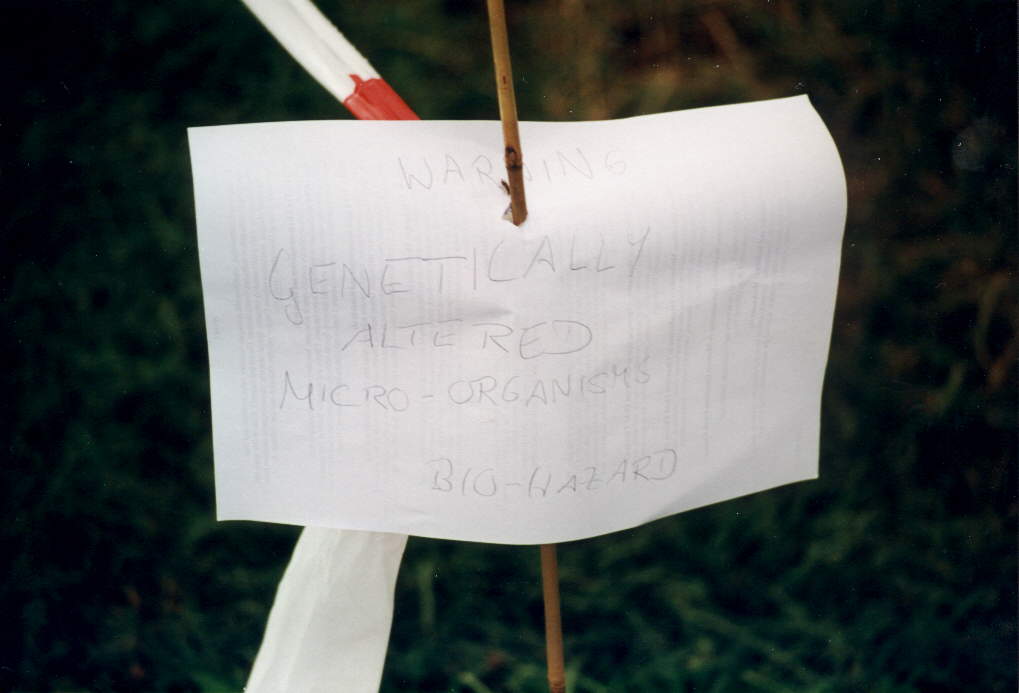 WARNING
GENETICALLY
ALTERED
MICRO-ORGANISMS
BIO-HAZARD